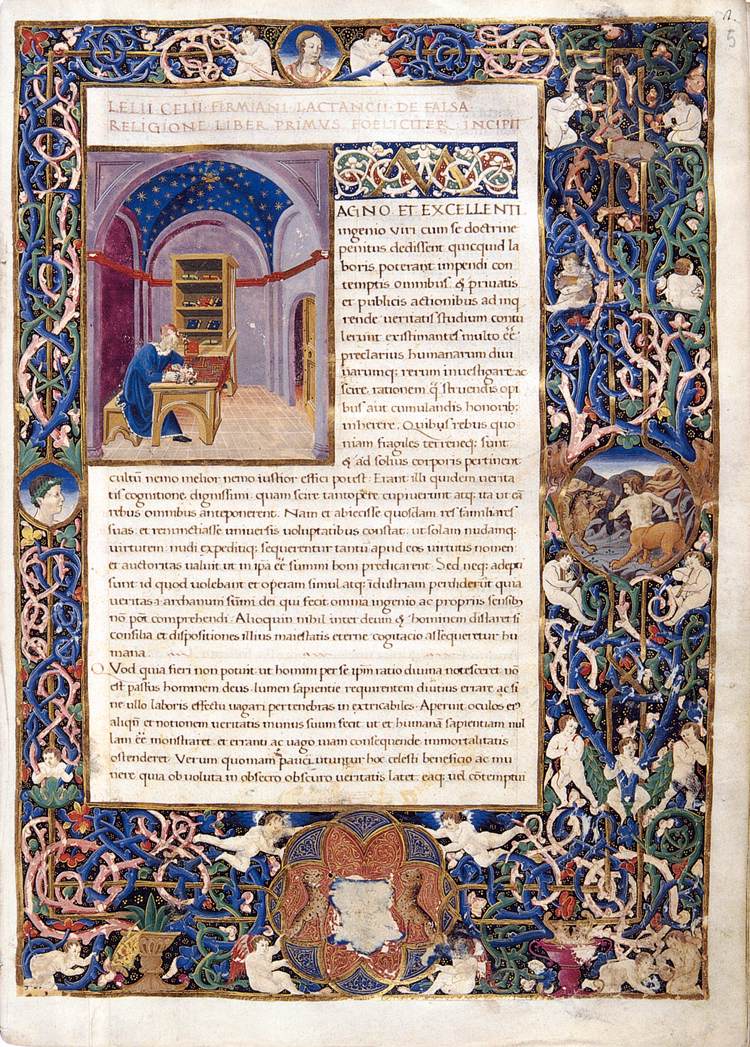 5
LELII CELII FIRMIANI LACTANCII DE FALSA
RELIGIONE LIBER PRIMUS FOELICITER INCIPIT
M
AGNO ET EXCELLENTI
ingenio viri cum se doctrine
penitus dedissent quicquid la
boris poterant impendi con
temptis omnibus & privatis
et publicis actionibus ad inq
rende veritatis studium contu
lerunt existimantes multo eē
preclarius humanarum divi
narumq; rerum investigare ac
scire rationem q̄ struendis opi
bus aut cumulandis honorib;
inherere. Quibus rebus quo
niam fragiles terreneq; sunt
& ad solius corporis pertinent
cultū nemo melior nemo iustior effici potest. Erant illi quidem verita
tis cognitione dignissimi quam scire tantopere cupiverunt atq; ita ut eā
rebus omnibus anteponerent. Nam et abiecisse quosdam res familiares
suas et renunctiasse universis voluptatibus constat ut solam nudamq;
virtutem nudi expeditiq; sequerentur tantū apud eos virtutis nomen
et auctoritas valuit ut in ipā eē summi boni predicarent. Sed neq; adepti
sunt id quod volebant et operam simul atq; idustriam perdiderūt quia
veritas archanum sūmi dei qui fecit omnia ingenio ac propriis sensib;
nō pōt comprehendi. Alioquin nihil inter deum & hominem distaret si
consilia et dispositiones illius maiestatis eterne cogitacio assequeretur hu
mana.
QVod quia fieri non potuit ut homini per se ipm̄ ratio divina notesceret nō
est passus hominem deus lumen sapientie requirentem diutius errare ac si
ne ullo laboris effectu vagari per tenebras inextricabiles. Aperuit oculos ei
aliqn̄ et notionem veritatis munus suum fecit ut et humanā sapientiam nul
lam eē monstraret et erranti ac vago viam consequende immortalitatis
ostenderet. Verum quoniam pauci utuntur hoc celesti beneficio ac mu
nere quia obvoluta in obscuro veritatis latet eaq; vel cōtemptui